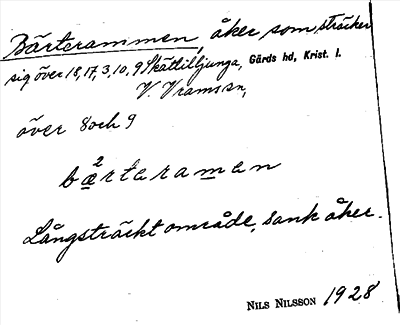 Bärterammen, åker som sträcker
sig över 18, 17, 3, 10, 9 Skättilljunga, Gärds hd, Krist. l.
V. Vramsn,
över 8 och 9
bæ²rteramen
Långsträckt område, sank åker.
NILS NILSSON 1928